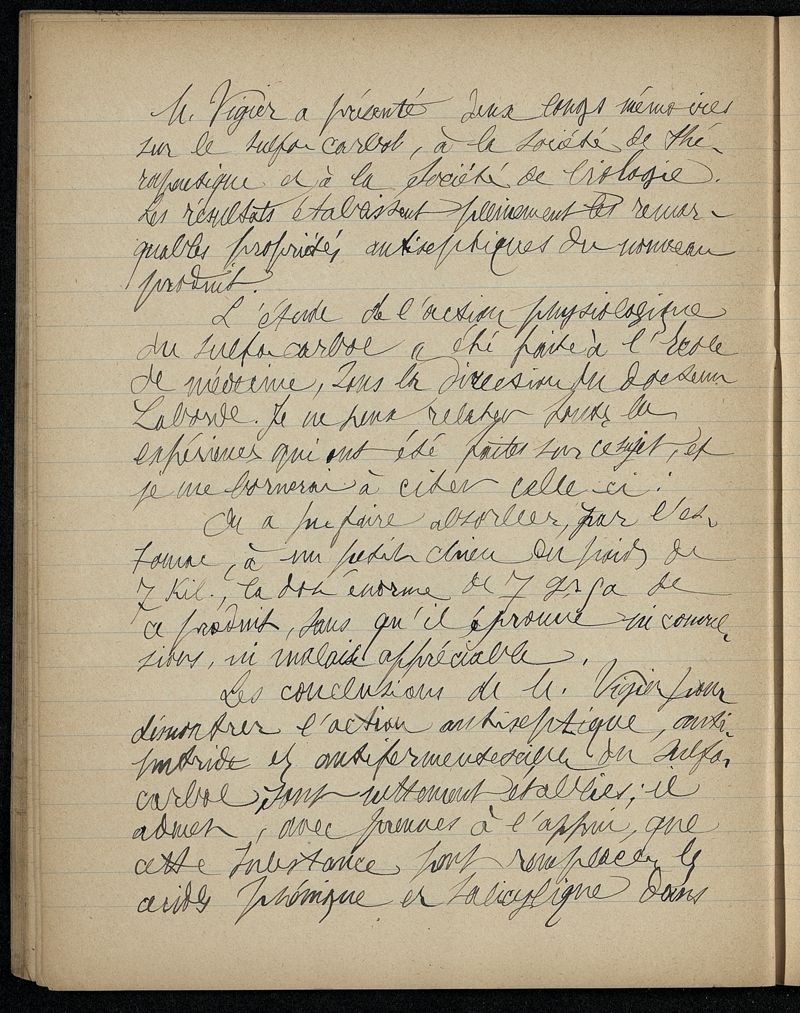 M. Vigier a présenté deux longs mémoires
sur le sulfo-carbol, à la Société de thé-
rapeutique et à la Société de biologie.
Les résultats établissent pleinement les remar-
quables propriétés antiseptiques du nouveau
produit.
L'étude de l'action physiologique
du sulfo-carbol a été faite à l'École
de médecine, sous la direction du docteur
Laborde. Je ne peux relater toutes les
expériences qui ont été faites sur ce sujet, et
je me bornerai à citer celle-ci :
On a pu faire absorber, par l'es-
tomac, à un petit chien du poids de
7 Kil., la dose énorme de 7 gr, 50 de
ce produit, sans qu'il éprouve ni convul-
sions, ni malaise appréciable.
Les conclusions de M. Vigier pour
démontrer l'action antiseptique, anti-
putride et antifermentescible du sulfo-
carbol sont nettement établies; il
admet, avec preuves à l'appui, que
cette substance peut remplacer les
acides phénique et salicylique dans